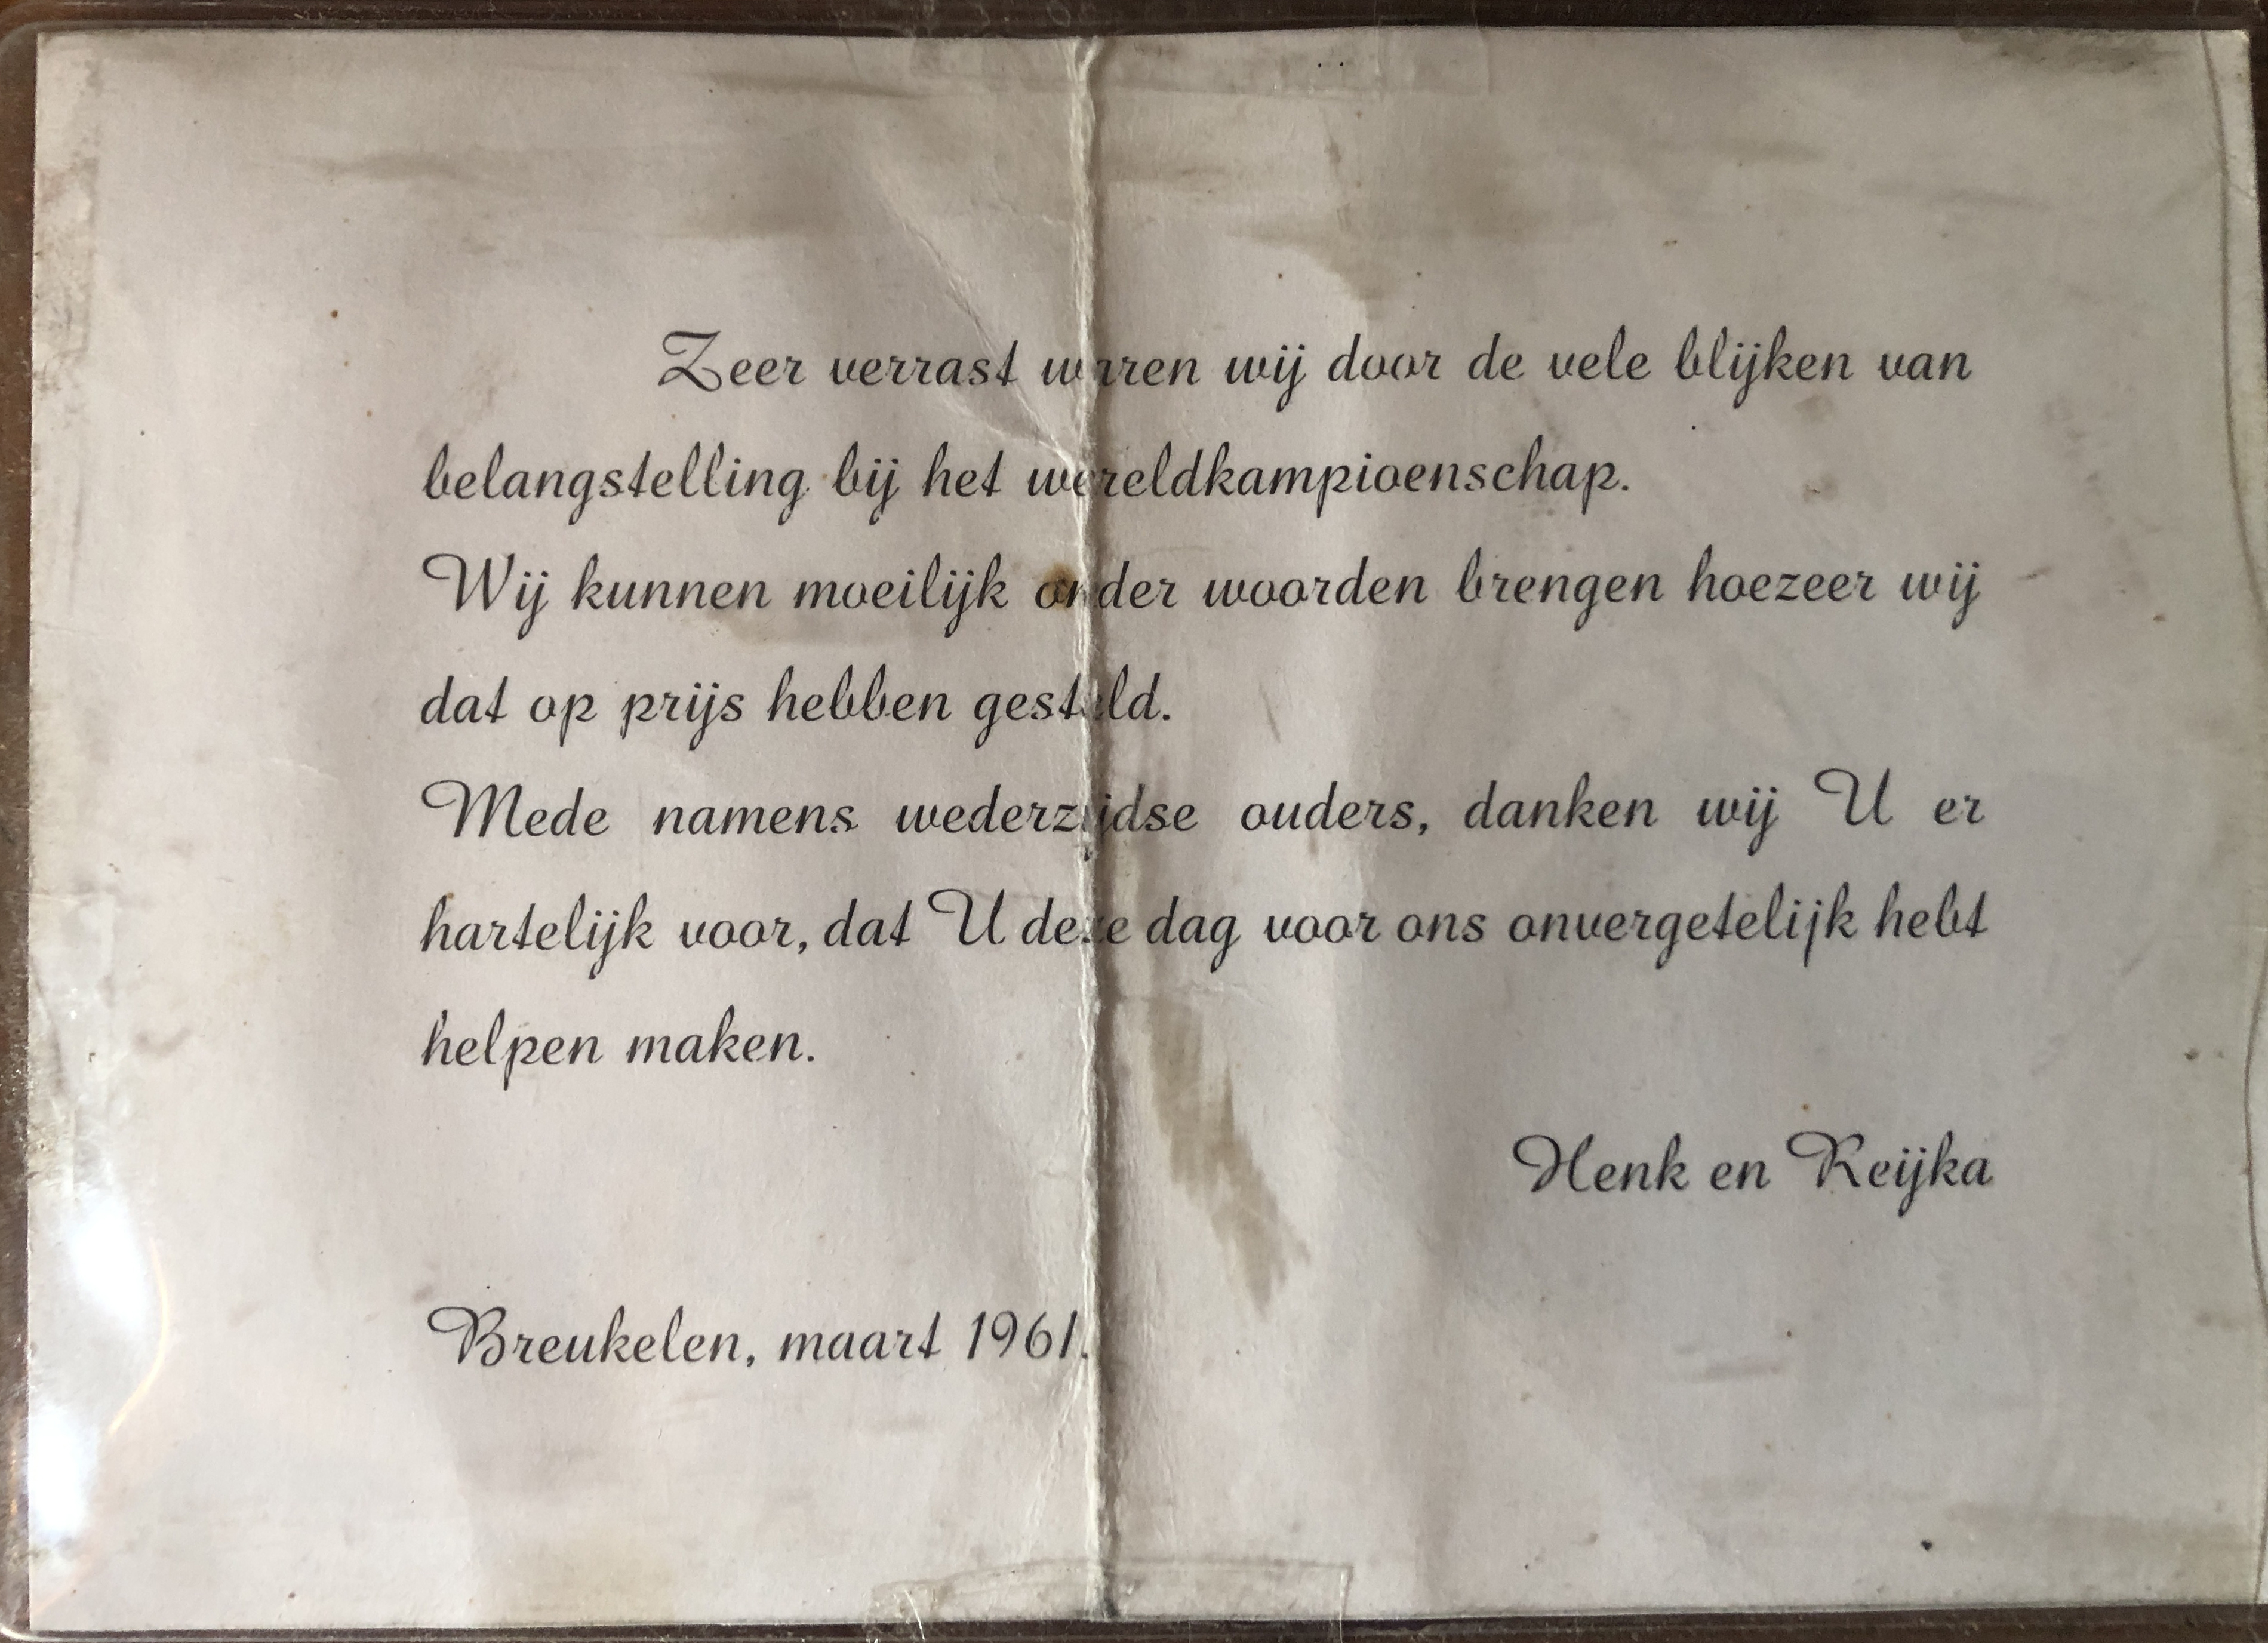 Zeer verrast waren wij door de vele blijken van
belangstelling bij het wereldkampioenschap.
Wij kunnen moeilijk onder woorden brengen hoezeer wij
dat op prijs hebben gesteld.
Mede namens wederzijdse ouders, danken wij U er
hartelijk voor, dat U deze dag voor ons onvergetelijk hebt
helpen maken.
Henk en Reijka
Breukelen, maart 1961.